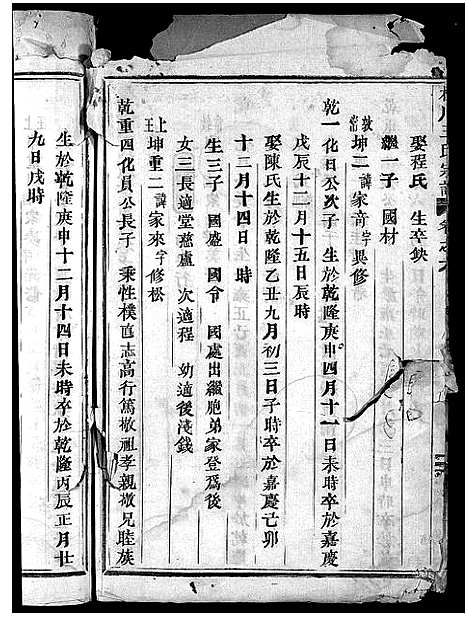 王氏宗譜
娶程氏 生卒缺
繼一子 國材
敦常坤二諱家奇字異修
乾一化日公次子 生於乾隆庚申四月十一日未時卒於嘉慶
戊辰十二月十五日辰時
娶陳氏生於乾隆乙丑九月初三日子時卒於嘉慶己卯
十二月十四日 時
生三子 國盛 國令 國處出繼胞弟家登為後
女三長適堂慈盧 次適程 幼適後淺錢
上王坤重二諱家來字修松
乾重四化員公長子 秉性樸直志高行篤敬祖孝親敬兄睦族
生於乾隆庚申十二月十四日未時卒於乾隆丙辰正月廿
九日戌時